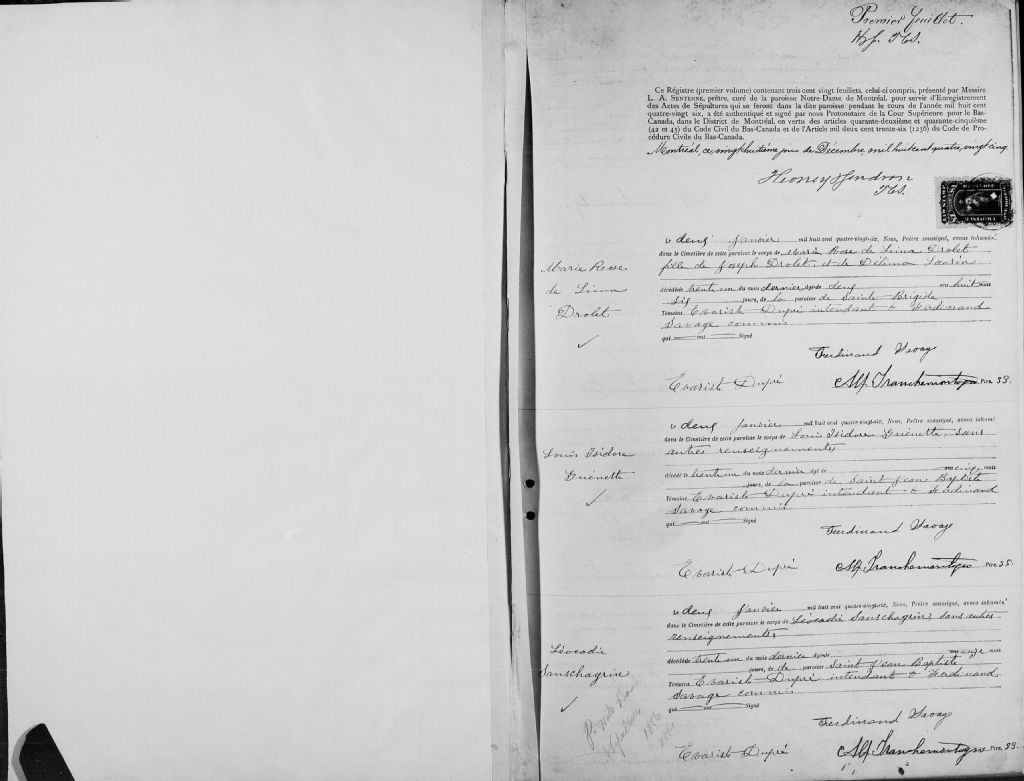 Premier feuillet.
Ce Régistre (premier volume) contenant trois cent vingt feuillets, celui-ci compris, présenté par Messire
L. A. SENTENNE, prêtre, curé de la paroisse Notre-Dame de Montréal, pour servir d'Enregistrement
des Actes de Sépultures qui se feront dans la dite paroisse pendant le cours de l'année mil huit cent
quatre-vingt six, a été authentiqué et signé par nous Protonotaire de la Cour Supérieure pour le Bas-
Canada, dans le District de Montréal, en vertu des articles quarante-deuxième et quarante-cinquième
(42 et 45) du Code Civil du Bas-Canada et de l'Article mil deux cent trente-six (1236) du Code de Pro-
cédure Civile du Bas-Canada.
Montréal, ce vingt huitième jour de Décembre, mil huit cent quatre, vingt cinq
Marie Rose
de Lima
Drolet
Le deux Janvier mil huit cent quatre-vingt-six, Nous, Prêtre soussigné, avons inhumé
dans le Cimetière de cette paroisse le corps de Marie Rose de Lima Drolet
fille de Joseph Drolet, et de Délima Laurin
décédée le trente un du mois dernier âgée de deux ans huit mois
six jours, de la paroisse de Sainte Brigide
Témoins Evariste Dupré intendant & Ferdinand
Savage commis
qui ont Signé
Ferdinand Savage
Evariste Dupré Alf. Tranchemontagne Ptre. SS.
Louis Isidore
Guénette
Le deux Janvier mil huit cent quatre-vingt-six, Nous, Prêtre soussigné, avons inhumé
dans le Cimetière de cette paroisse le corps de Louis Isidore Guénette, sans
autres renseignements
décédé le trente un du mois dernier âgé de ans cinq mois
jours, de la paroisse de Saint Jean Baptiste
Témoins Evariste Dupré intendant & Ferdinand
Savage commis
qui ont Signé
Ferdinand Savage
Evariste Dupré Alf. Tranchemontagne Ptre. SS.
Léocadie
Sanschagrin
Le deux Janvier mil huit cent quatre-vingt-six, Nous, Prêtre soussigné, avons inhumé
dans le Cimetière de cette paroisse le corps de Léocadie Sanschagrin, sans autres
renseignements
décédée le trente un du mois dernier âgée de ans onze mois
jours, de de paroisse Saint Jean Baptiste
Témoins Evariste Dupré intendant & Ferdinand
Savage commis
qui ont Signé
Ferdinand Savage
Evariste Dupré Alf. Tranchemontagne Ptre. SS.